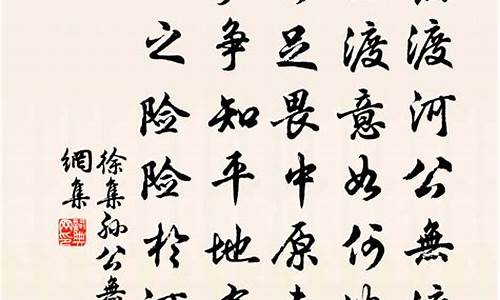 渡河公無渡
渡意如何
足畏中原
争知平地
之险险於河
徐集孙公無
網集